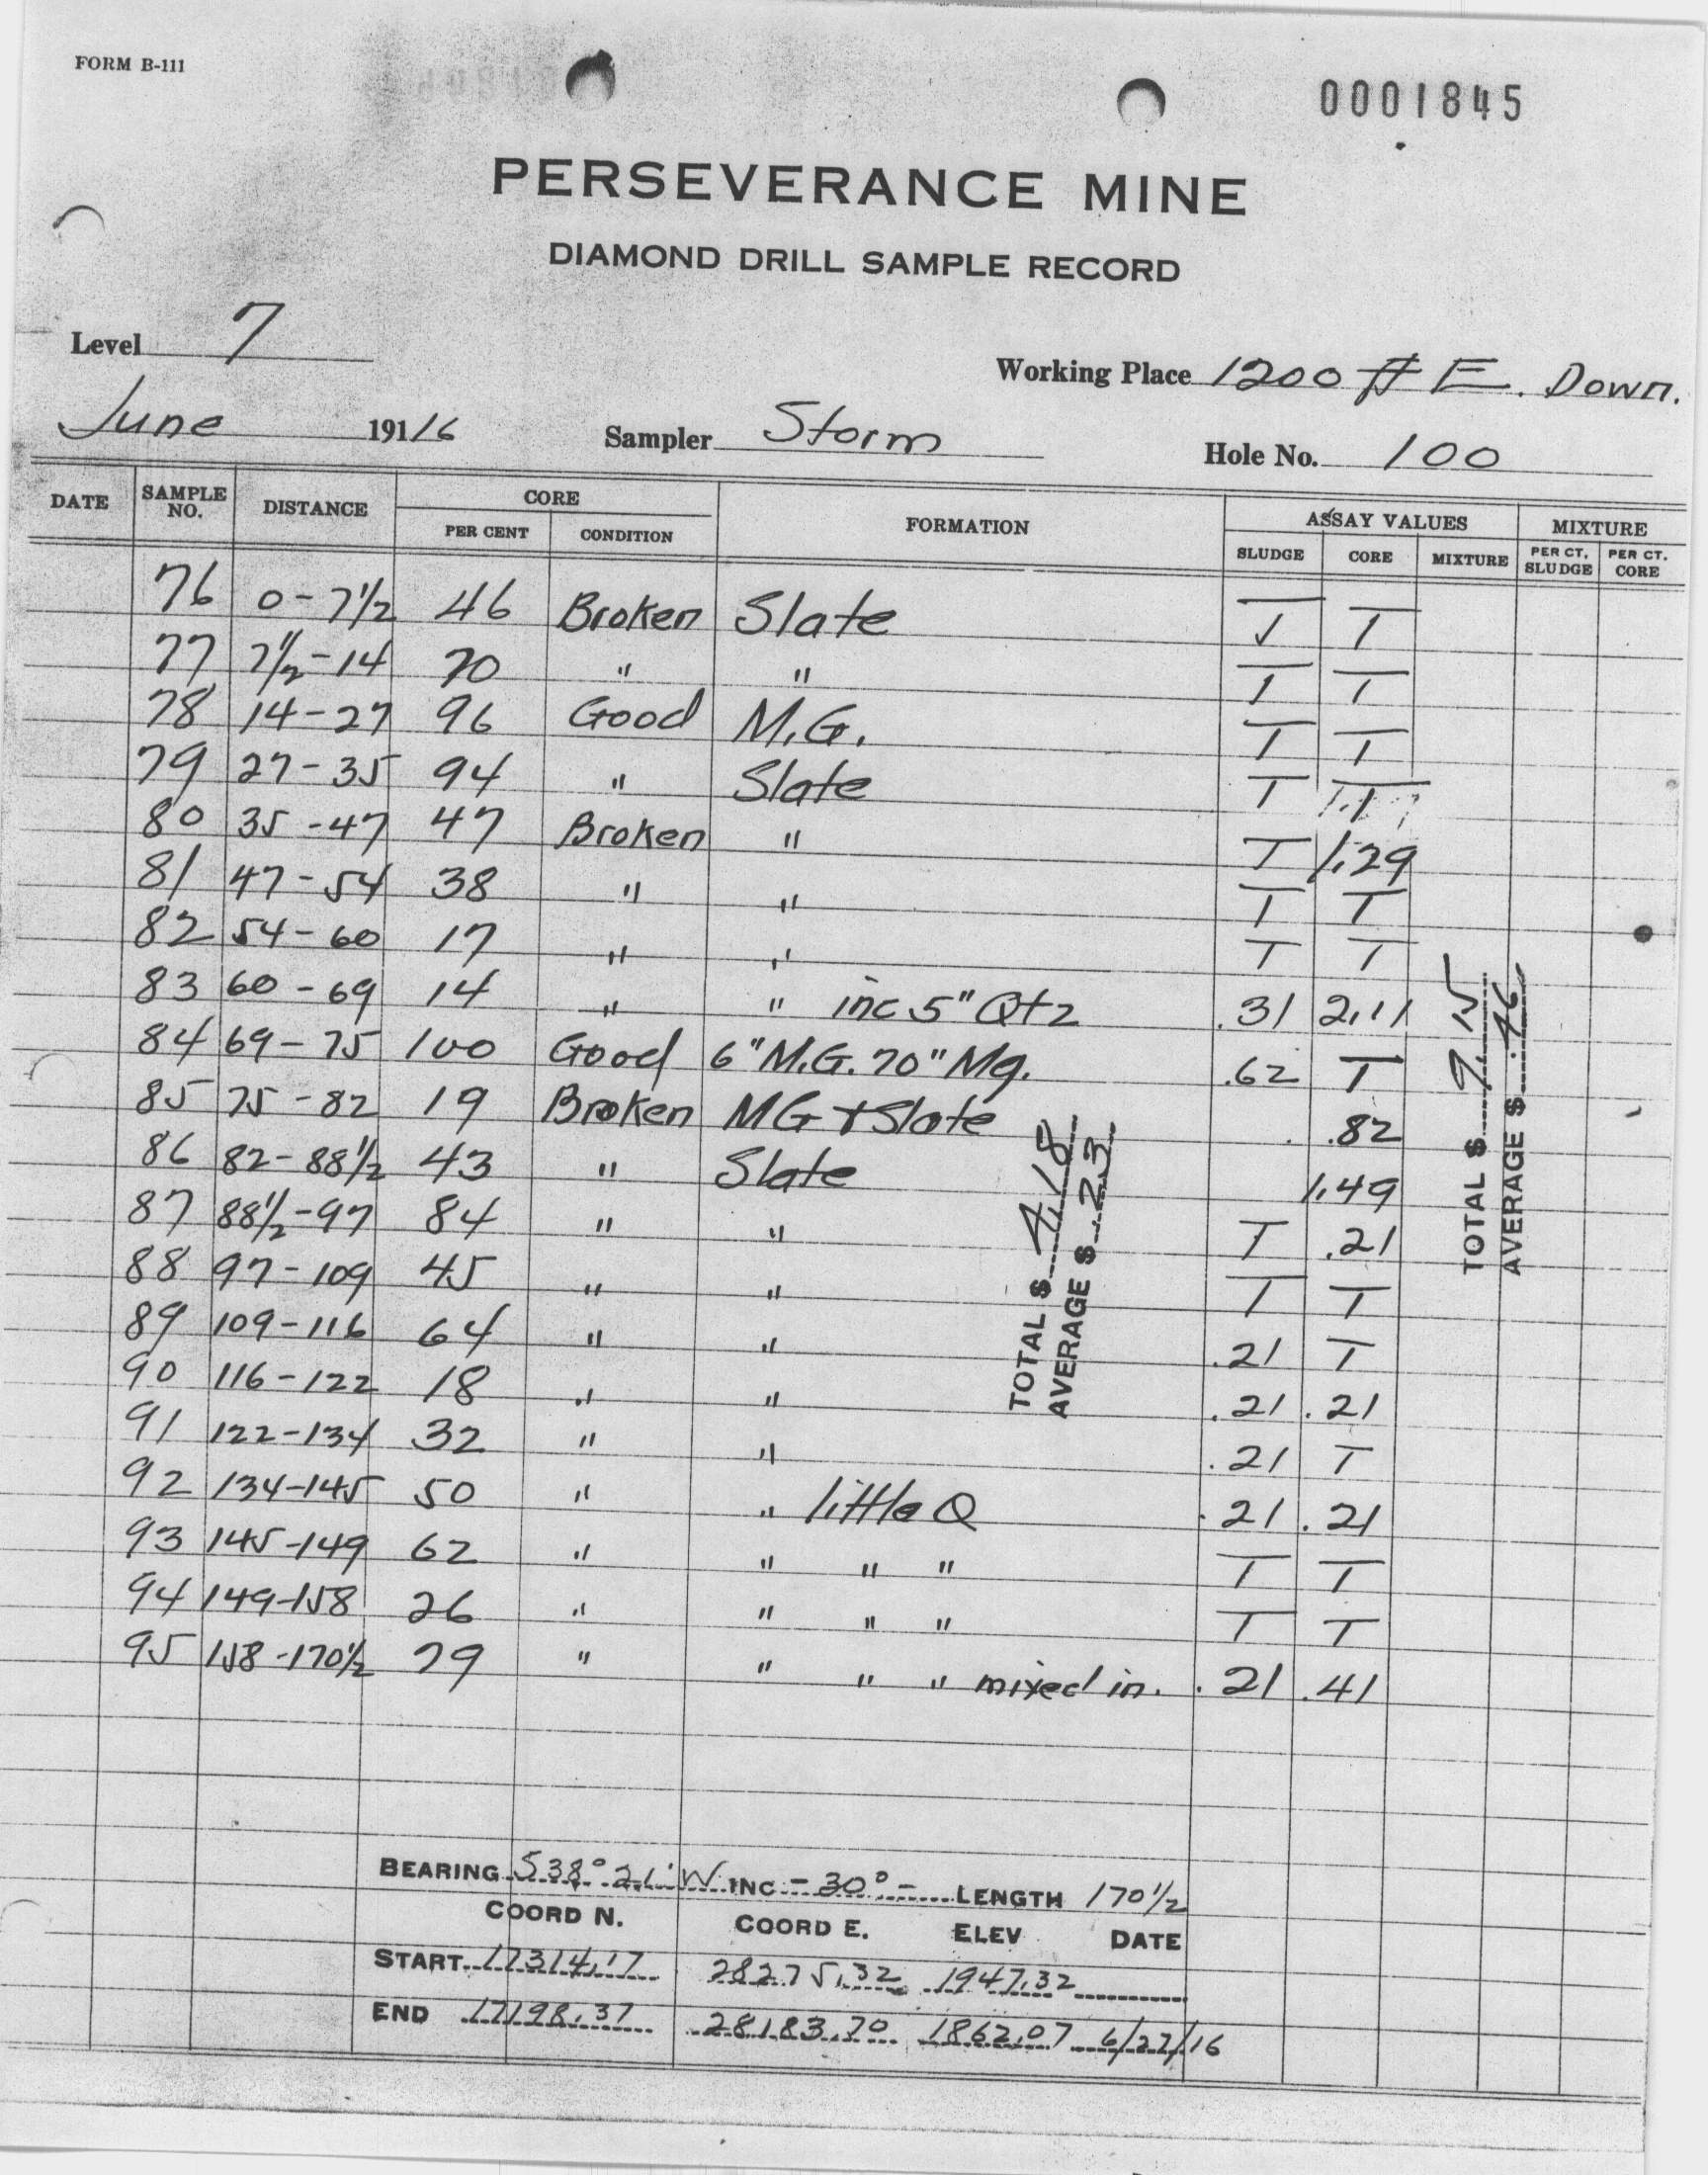 FORM B-111
0001845
PERSEVERANCE MINE
DIAMOND DRILL SAMPLE RECORD
Level 7
Working Place 1200 ft E. Down.
June 191/6 Sampler Storm Hole No. 100
DATE SAMPLE NO. DISTANCE CORE FORMATION ASSAY VALUES MIXTURE
PER CENT CONDITION SLUDGE CORE MIXTURE PER CT. SLUDGE PER CT. CORE
76 0-7½ 46 Broken Slate T T
77 7½-14 70 " " T T
78 14-27 96 Good M.G. T T
79 27-35 94 " Slate T
80 35-47 47 Broken " T 1.29
81 47-54 38 " " T T
82 54-60 17 " " T T
83 60-69 14 " " inc 5" Qtz .31 2.11
84 69-75 100 Good 6" M.G. 70" Mg. .62 T
85 75-82 19 Broken MG & Slate .82
86 82-88½ 43 " Slate 1.49
87 88½-97 84 " " T .21
88 97-109 45 " " T T
89 109-116 64 " " .21 T
90 116-122 18 " " .21 .21
91 122-134 32 " " .21 T
92 134-145 50 " " little Q .21 .21
93 145-149 62 " " " " T T
94 149-158 26 " " " " T T
95 158-170½ 79 " " " " mixed in. .21 .41
TOTAL $ 4.18
AVERAGE $ .23
TOTAL $ 9.15
AVERAGE $ .46
BEARING S38° 21' W INC -30°- LENGTH 170½
COORD N. COORD E. ELEV DATE
START 17314.17 28275.32 1947.32
END 17198.37 28183.70 1862.07 6/27/16